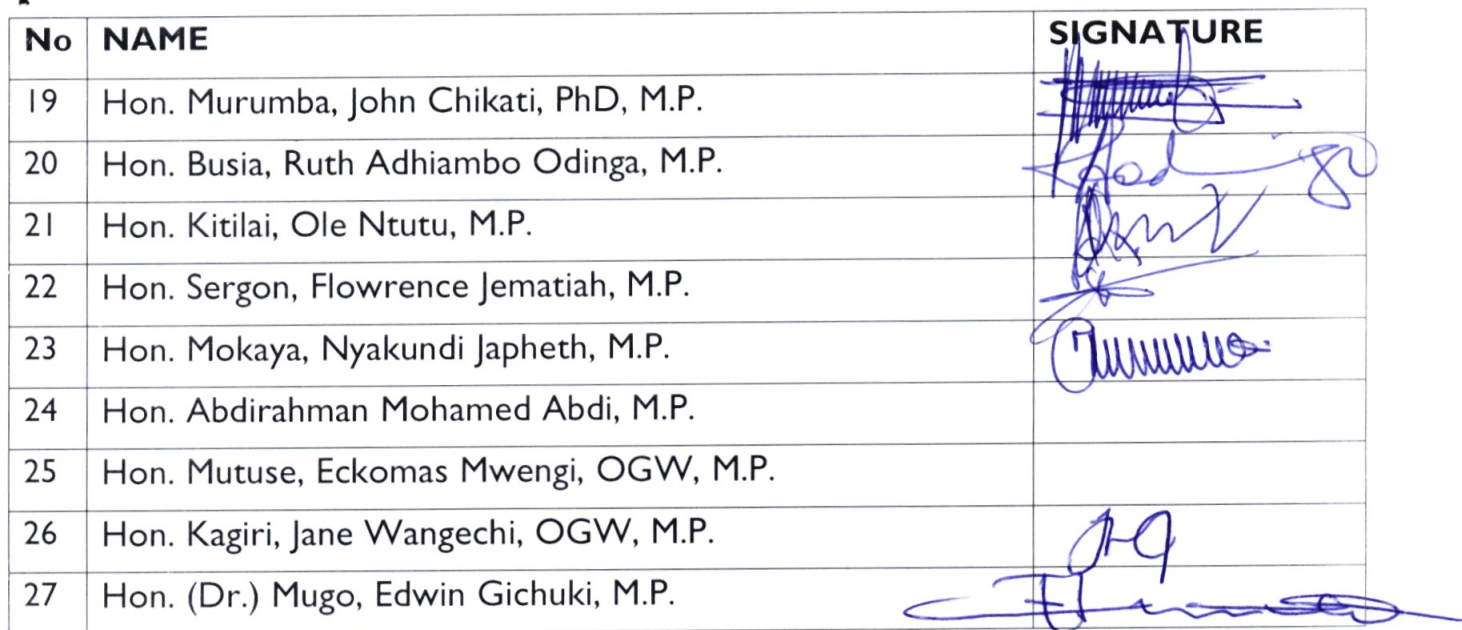 No NAME SIGNATURE
19 Hon. Murumba, John Chikati, PhD, M.P.
20 Hon. Busia, Ruth Adhiambo Odinga, M.P.
21 Hon. Kitilai, Ole Ntutu, M.P.
22 Hon. Sergon, Flowrence Jematiah, M.P.
23 Hon. Mokaya, Nyakundi Japheth, M.P.
24 Hon. Abdirahman Mohamed Abdi, M.P.
25 Hon. Mutuse, Eckomas Mwengi, OGW, M.P.
26 Hon. Kagiri, Jane Wangechi, OGW, M.P.
27 Hon. (Dr.) Mugo, Edwin Gichuki, M.P.